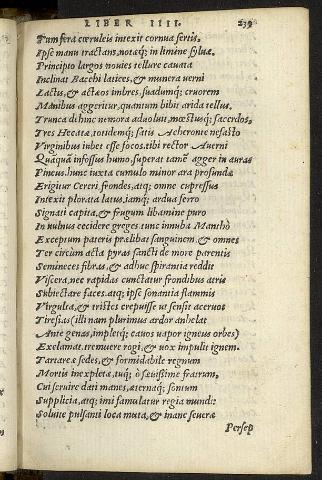 LIBER IIII. 239
Tum fera cœruleis intexit cornua sertis,
Ipse manu tractans, notæq; in limine syluæ.
Principio largos nouies tellure cauata
Inclinat Bacchi latices, & munera uerni
Lactis, & actæos imbres, suadumq; cruorem
Manibus aggeritur, quantum bibit arida tellus.
Trunca dehinc nemora aduoluit, mœstusq; sacerdos,
Tres Hecatæ, totidemq; satis Acheronte nefasto
Virginibus iubet esse focos, tibi rector Auerni
Quāquā infossus humo, superat tamē agger in auras
Pineus. hunc iuxta cumulo minor ara profundæ
Erigitur Cereri, frondes, atq; omne cupressus
Intexit plorata latus, iamq; ardua ferro
Signati capita, & frugum libamine puro
In uulnus cecidere greges. tunc innuba Manthò
Exceptum pateris prælibat sanguinem, & omnes
Ter circum acta pyras sancti de more parentis
Semineces fibras, & adhuc spirantia reddit
Viscera, nec rapidas cunctatur frondibus atris
Subiectare faces. atq; ipse sonantia flammis
Virgulta, & tristes crepuisse ut sensit aceruos
Tiresias (illi nam plurimus ardor anhelat
Ante genas, impletq; cauos uapor igneus orbes)
Exclamat. tremuere rogi, & uox impulit ignem.
Tartareæ sedes, & formidabile regnum
Mortis inexpletæ, tuq; ô sæuissime fratrum,
Cui seruire dati manes, æternaq; sontum
Supplicia, atq; imi famulatur regia mundi:
Soluite pulsanti loca muta, & inane seueræ
Persep